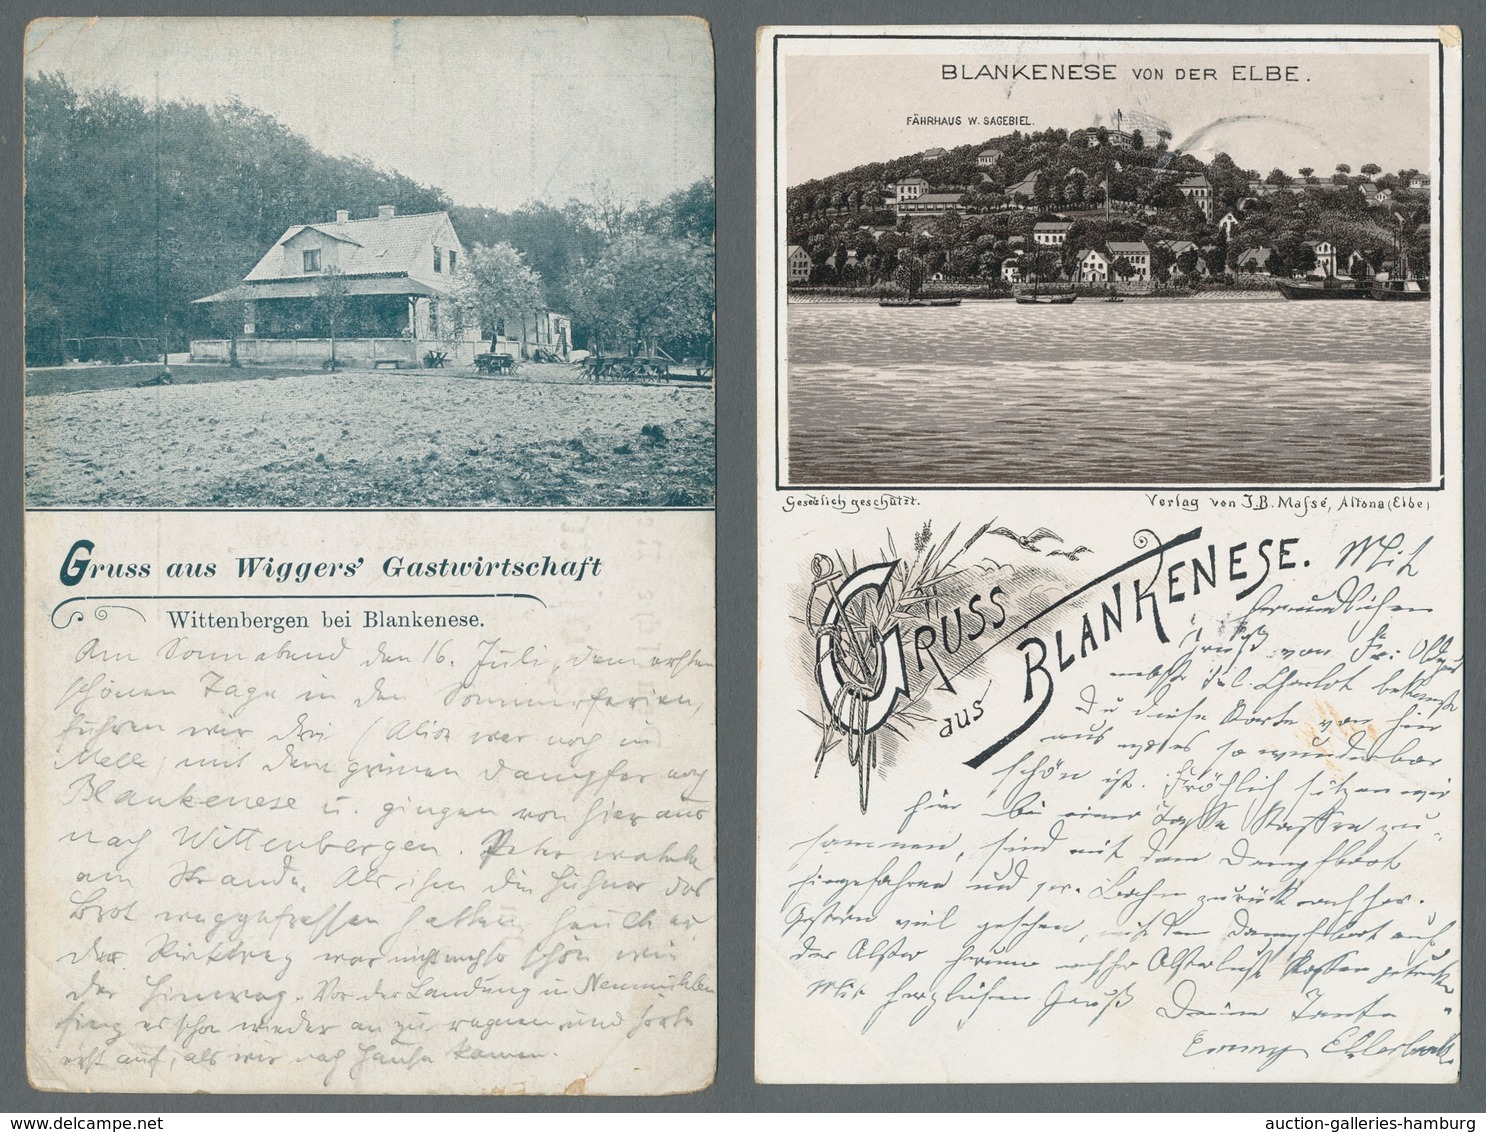 Gruss aus Wiggers' Gastwirtschaft
Wittenbergen bei Blankenese.
Am Sonnabend den 16. Juli, dem ersten
schönen Tage in den Sommerferien,
fuhren wir drei (Alice war noch in
Melle) mit dem grünen Dampfer nach
Blankenese u. gingen von hier aus
nach Wittenbergen. Peter
am Strande. Als ihm die Hühner das
Brot weggefressen hatten,
der Rückweg war nicht mehr so schön wie
der Hinweg. Vor der Landung in Neumühlen
fing es schon wieder an zu regnen und hörte
erst auf, als wir nach Hause kamen.
BLANKENESE VON DER ELBE.
FÄHRHAUS W. SAGEBIEL.
Gesetzlich geschützt.
Verlag von J.B. Massé, Altona (Elbe)
GRUSS aus BLANKENESE.
Mit
freundlichem
Gruß von Fr.
nebst
Du diese Karte von hier
aus so wunderbar
schön ist. Fröhlich sitzen wir
hier bei einer Tasse Kaffee zu-
sammen, sind mit dem Dampfboot
hingefahren und pr. Bahn zurück nachher.
Gestern viel gesehen, mit dem Dampfboot auf
der Alster herum Kaffee getrunken
Mit herzlichem Gruß Deine Tante
Emmy
auction-galleries-hamburg